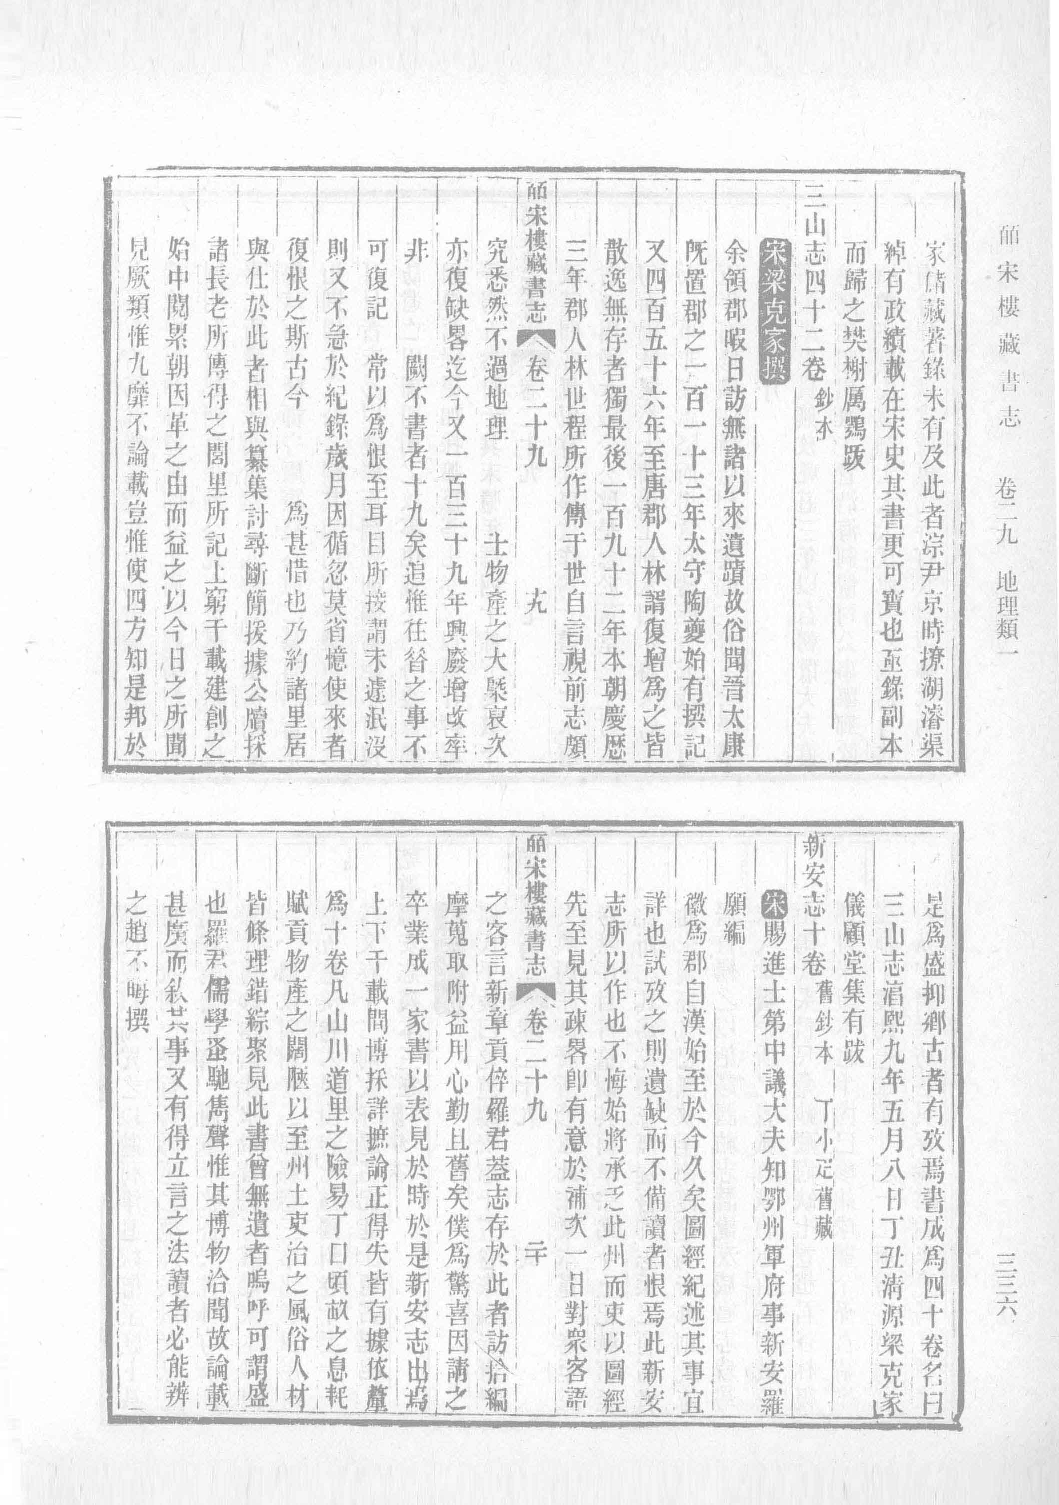 皕宋樓藏書志　卷二九　地理類一
三三六
家儲藏著錄未有及此者淙尹京時撩湖濬渠
綽有政績載在宋史其書更可寶也亟錄副本
而歸之樊榭厲鶚跋
三山志四十二卷　鈔本
宋梁克家撰
余領郡暇日訪無諸以來遺蹟故俗聞晉太康
旣置郡之一百一十三年太守陶夔始有撰記
又四百五十六年至唐郡人林諝復增爲之皆
散逸無存者獨最後一百九十二年本朝慶歷
三年郡人林世程所作傳于世自言視前志頗
皕宋樓藏書志　卷二十九　十九
究悉然不過地理　　土物產之大槩裒次
亦復缺畧迄今又一百三十九年興廢增改率
非　　闕不書者十九矣追惟往昝之事不
可復記　常以爲恨至耳目所接謂未遽泯沒
則又不急於紀錄歲月因循忽莫省憶使來者
復恨之斯古今　　爲甚惜也乃約諸里居
與仕於此者相與纂集討尋斷簡援據公牘採
諸長老所傳得之閭里所記上窮千載建創之
始中閱累朝因革之由而益之以今日之所聞
見厥類惟九靡不論載豈惟使四方知是邦於
是爲盛抑鄉古者有攷焉書成爲四十卷名曰
三山志淳熙九年五月八日丁丑淸源梁克家
儀顧堂集有跋
新安志十卷　舊鈔本　丁小疋舊藏
宋賜進士第中議大夫知鄂州軍府事新安羅
願編
徽爲郡自漢始至於今久矣圖經紀述其事宜
詳也試攷之則遺缺而不備讀者恨焉此新安
志所以作也不悔始將承乏此州而吏以圖經
先至見其疎畧卽有意於補次一日對衆客語
皕宋樓藏書志　卷二十九　二十
之客言新章貢倅羅君蓋志存於此者訪拾編
摩蒐取附益用心勤且舊矣僕爲驚喜因請之
卒業成一家書以表見於時於是新安志出焉
上下千載間博採詳摭論正得失皆有據依釐
爲十卷凡山川道里之險易丁口頃畝之息耗
賦貢物產之闊陿以至州土吏治之風俗人材
皆條理錯綜聚見此書曾無遺者嗚呼可謂盛
也羅君儒學蚤馳雋聲惟其博物洽聞故論載
甚廣而敘其事又有得立言之法讀者必能辨
之趙不晦撰